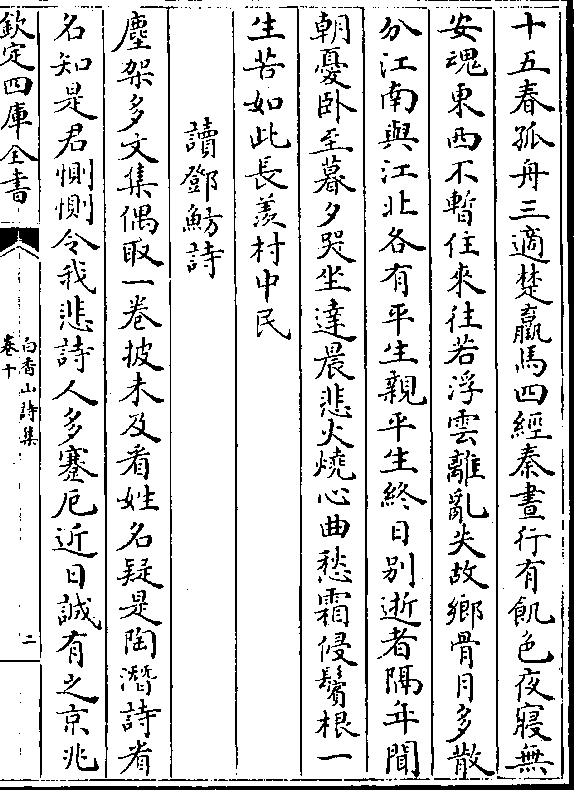 十五春孤舟三適楚羸馬四經秦晝行有飢色夜寢無
安魂東西不暫住來往若浮雲離亂失故鄉骨月多散
分江南與江北各有平生親平生終日別逝者隔年聞
朝憂卧至暮夕哭坐達晨悲火燒心曲愁霜侵鬢根一
生苦如此長羨村中民
讀鄧魴詩
塵架多文集偶取一卷披未及看姓名疑是陶潛詩看
名知是君惻惻令我悲詩人多蹇厄近日誠有之京兆
欽定四庫全書
白香山詩集
卷十
二